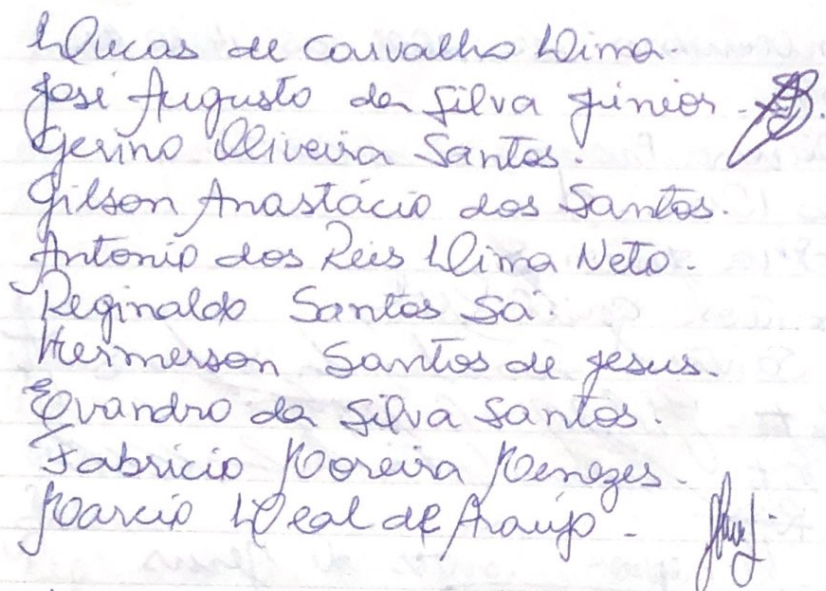 Lucas de Carvalho Lima.
José Augusto da Silva Júnior.
Gerino Oliveira Santos.
Gilson Anastácio dos Santos.
Antonio dos Reis Lima Neto.
Reginaldo Santos Sá.
Hermerson Santos de Jesus.
Evandro da Silva Santos.
Fabricio Moreira Menezes.
Marcio Leal de Araujo -